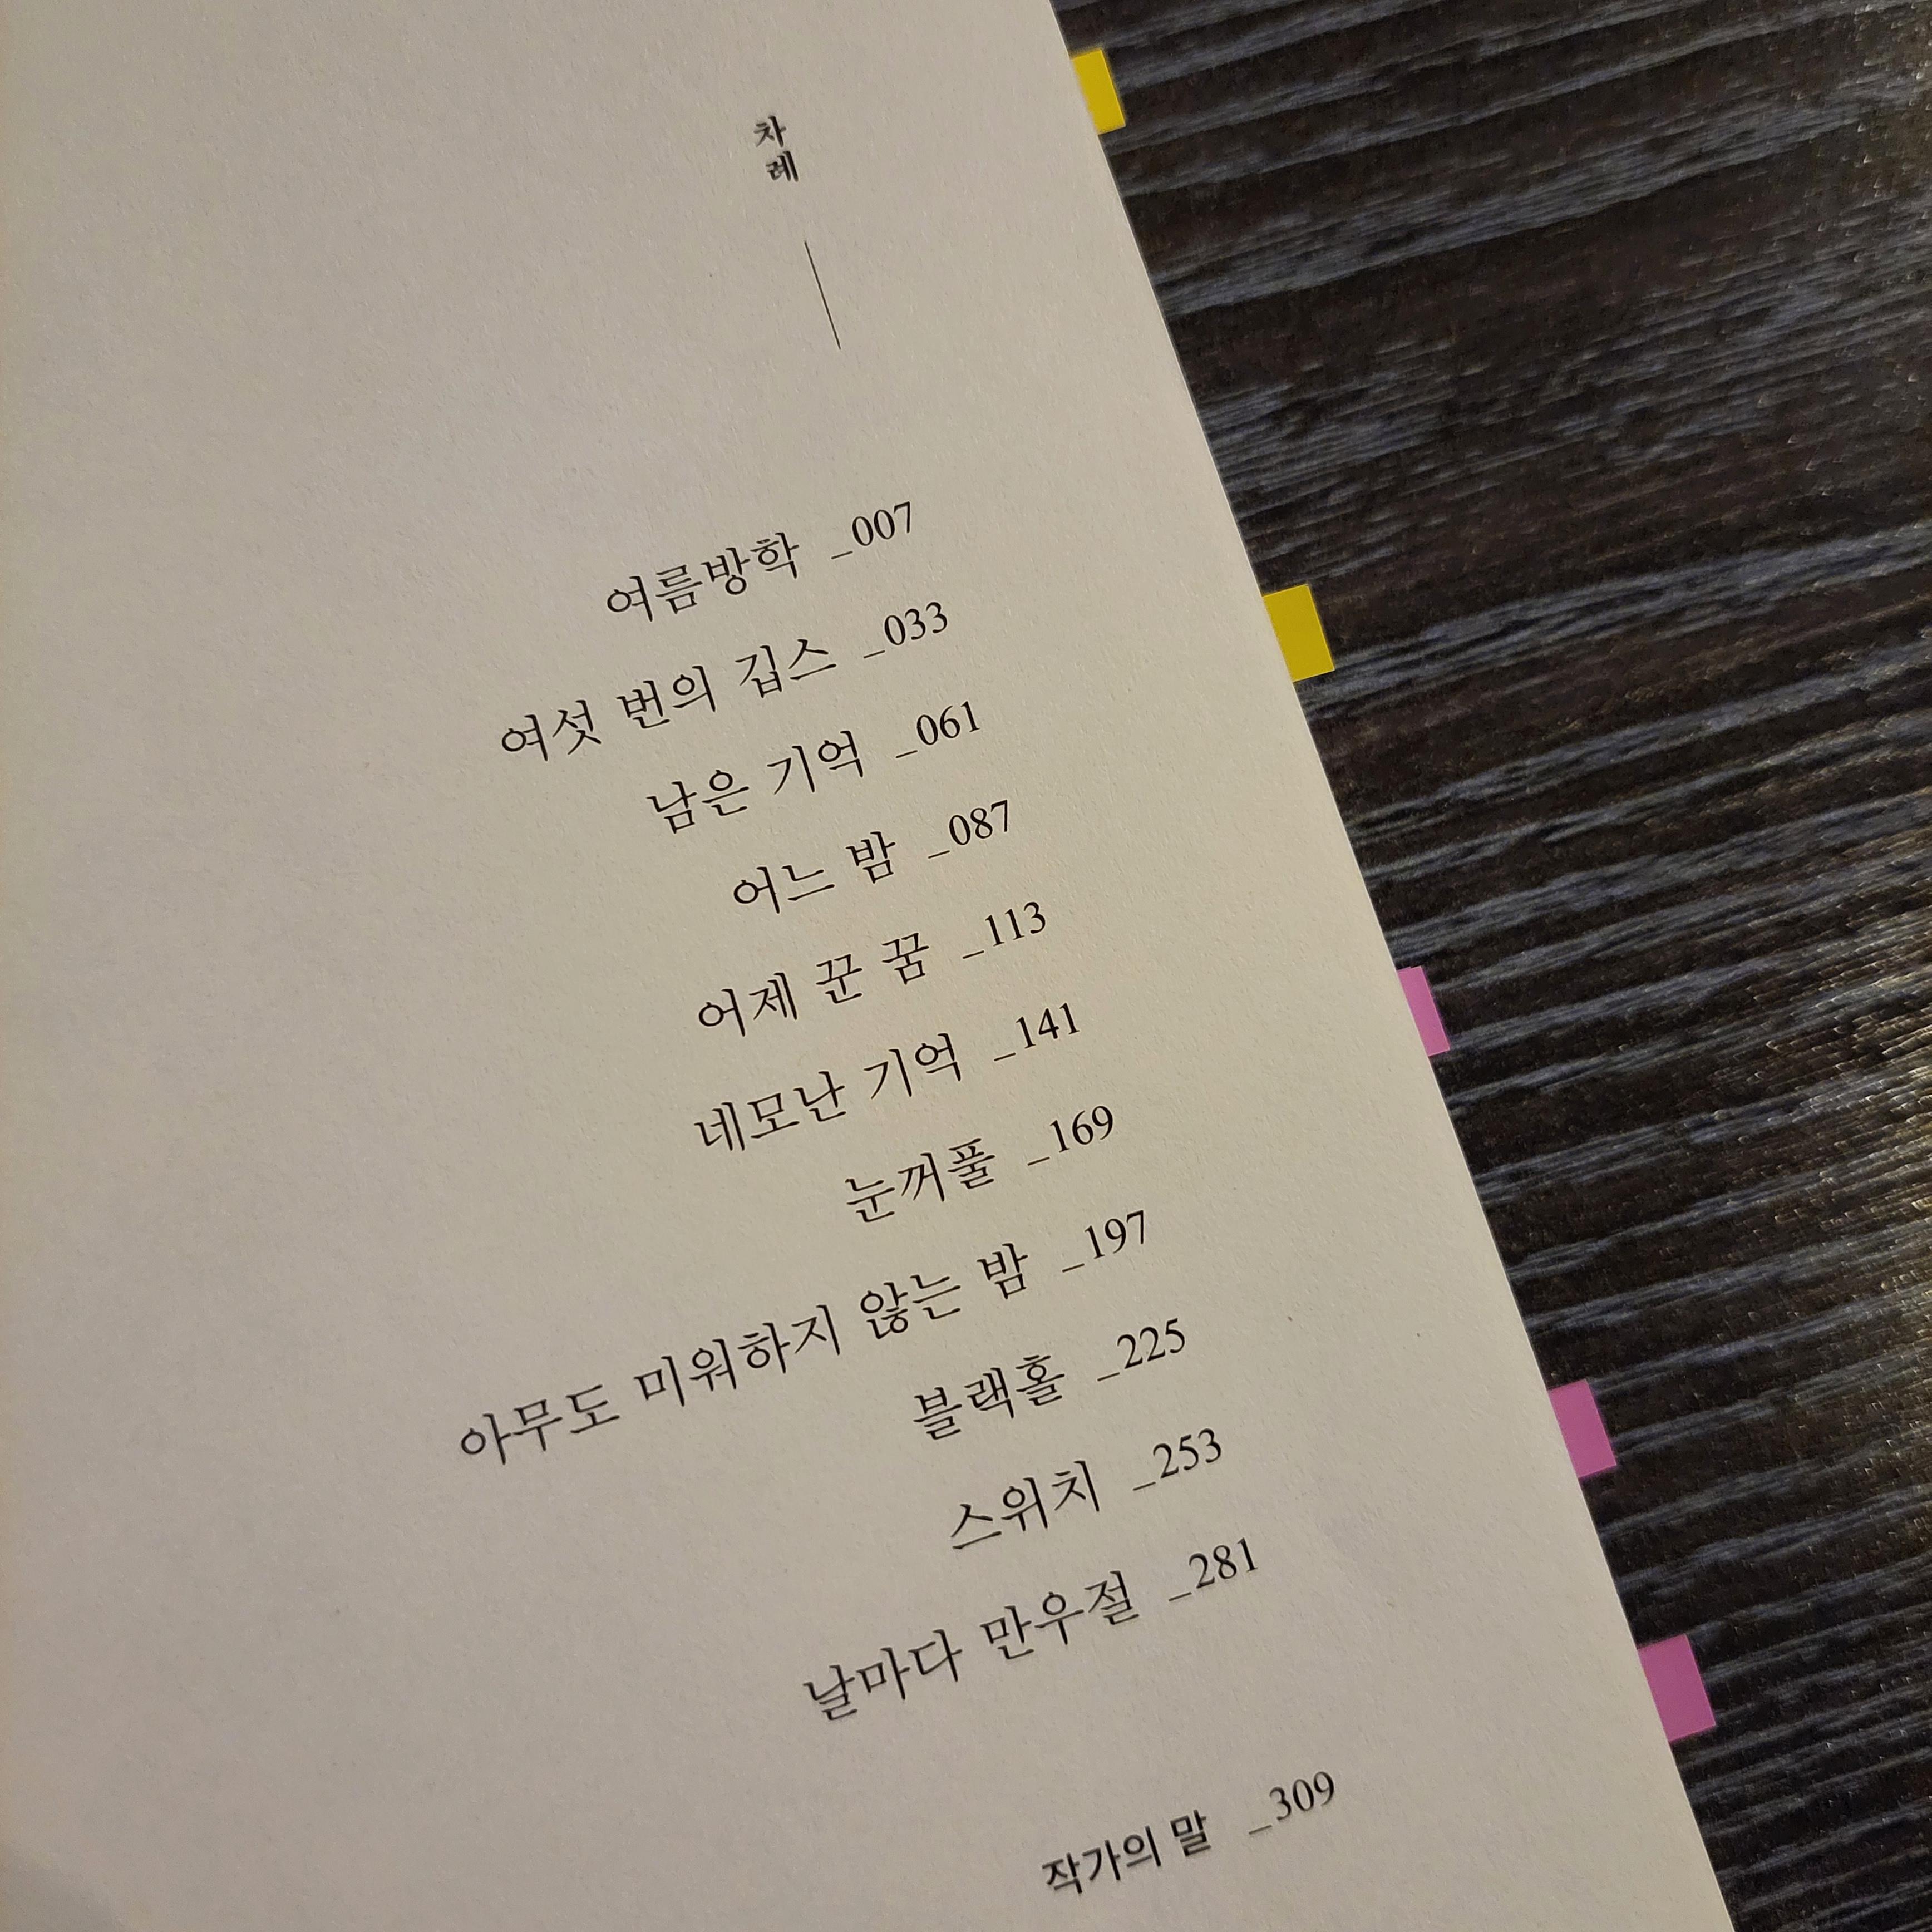 차례
여름방학 _007
여섯 번의 깁스 _033
남은 기억 _061
어느 밤 _087
어제 꾼 꿈 _113
네모난 기억 _141
눈꺼풀 _169
아무도 미워하지 않는 밤 _197
블랙홀 _225
스위치 _253
날마다 만우절 _281
작가의 말 _309